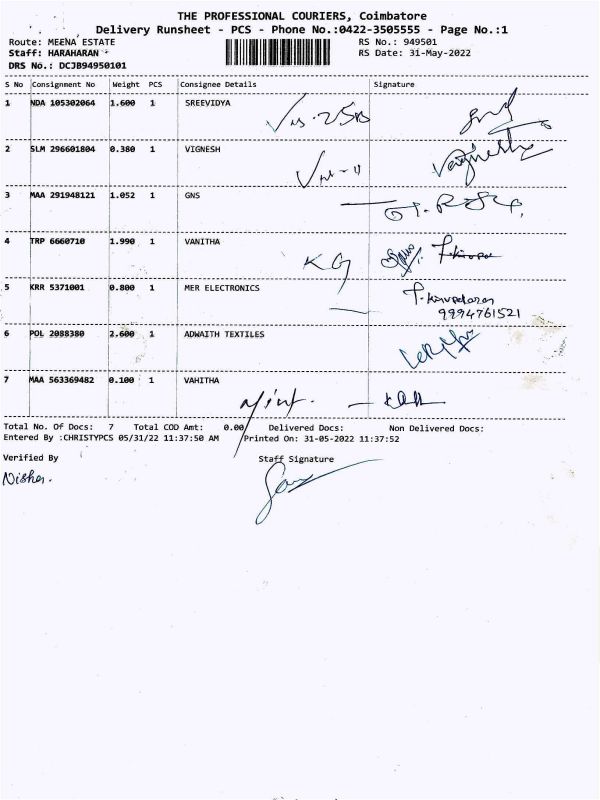 THE PROFESSIONAL COURIERS, Coimbatore
Delivery Runsheet - PCS - Phone No.:0422-3505555 - Page No.:1
Route: MEENA ESTATE RS No.: 949501
Staff: HARAHARAN RS Date: 31-May-2022
DRS No.: DCJB94950101
S No Consignment No Weight PCS Consignee Details Signature
1 NDA 105302064 1.600 1 SREEVIDYA
2 SLM 296601804 0.380 1 VIGNESH
Vignesh
3 MAA 291948121 1.052 1 GNS
4 TRP 6660710 1.990 1 VANITHA
KG
5 KRR 5371001 0.800 1 MER ELECTRONICS
9994761521
6 POL 2088380 2.600 1 ADWAITH TEXTILES
7 MAA 563369482 0.100 1 VAHITHA
Total No. Of Docs: 7 Total COD Amt: 0.00 Delivered Docs: Non Delivered Docs:
Entered By :CHRISTYPCS 05/31/22 11:37:50 AM Printed On: 31-05-2022 11:37:52
Verified By Staff Signature